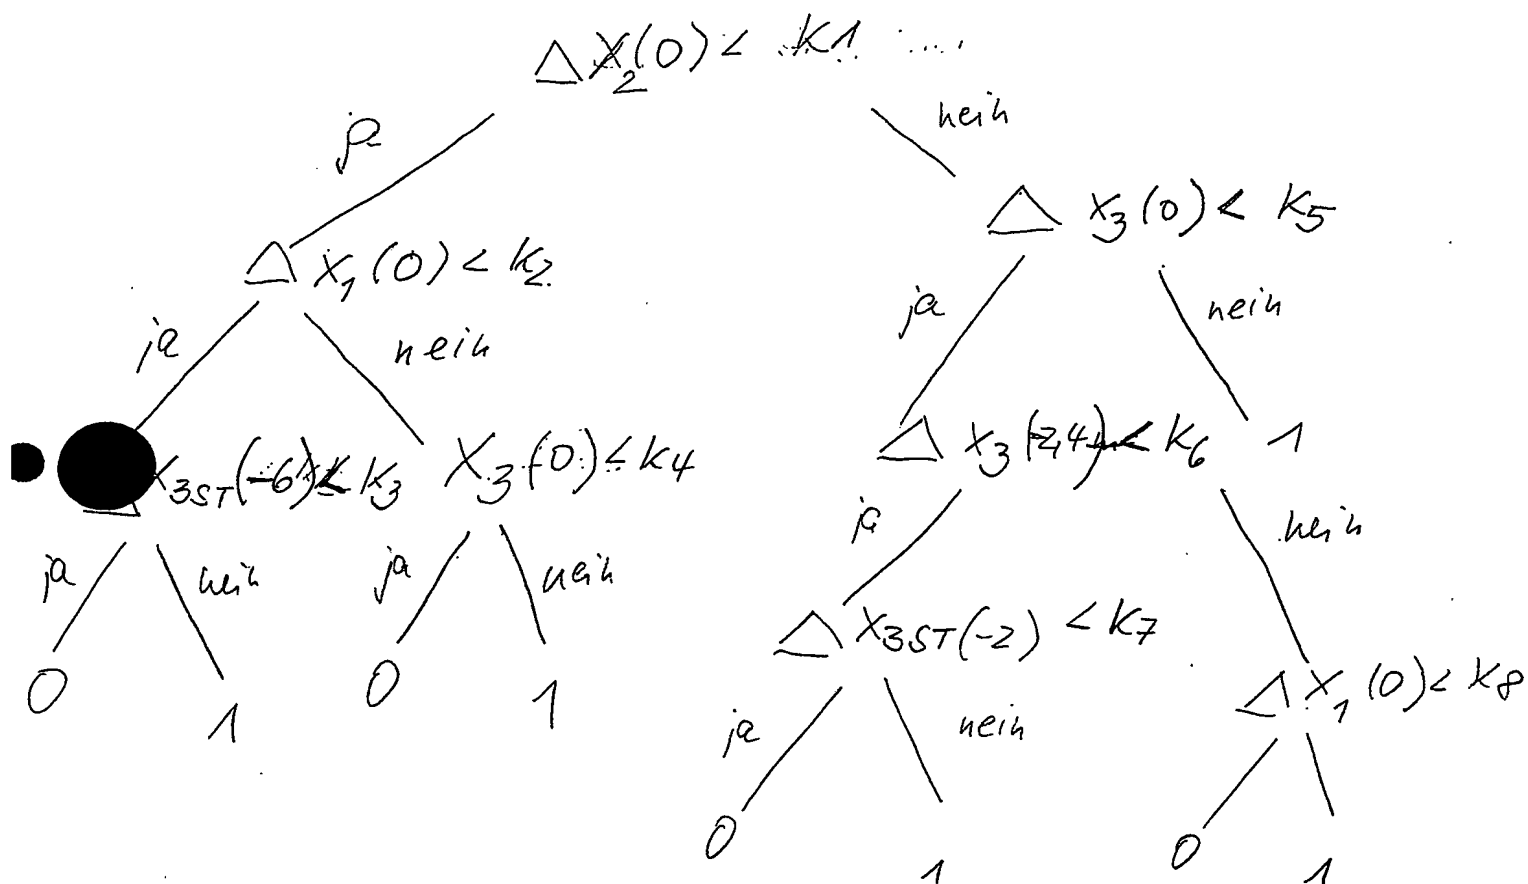 ΔX₂(0) < K1 ....
ja
nein
Δ X₃(0) < K5
Δ X₁(0) < K2
ja
nein
ja
nein
X₃ST(-6) ≤ K3
X₃(0) ≤ K4
Δ X₃(-2,4) < K6
1
ja
nein
ja
nein
ja
nein
Δ X₃ST(-2) < K7
0
1
0
1
Δ X₁(0) < K8
ja
nein
0
1
0
1